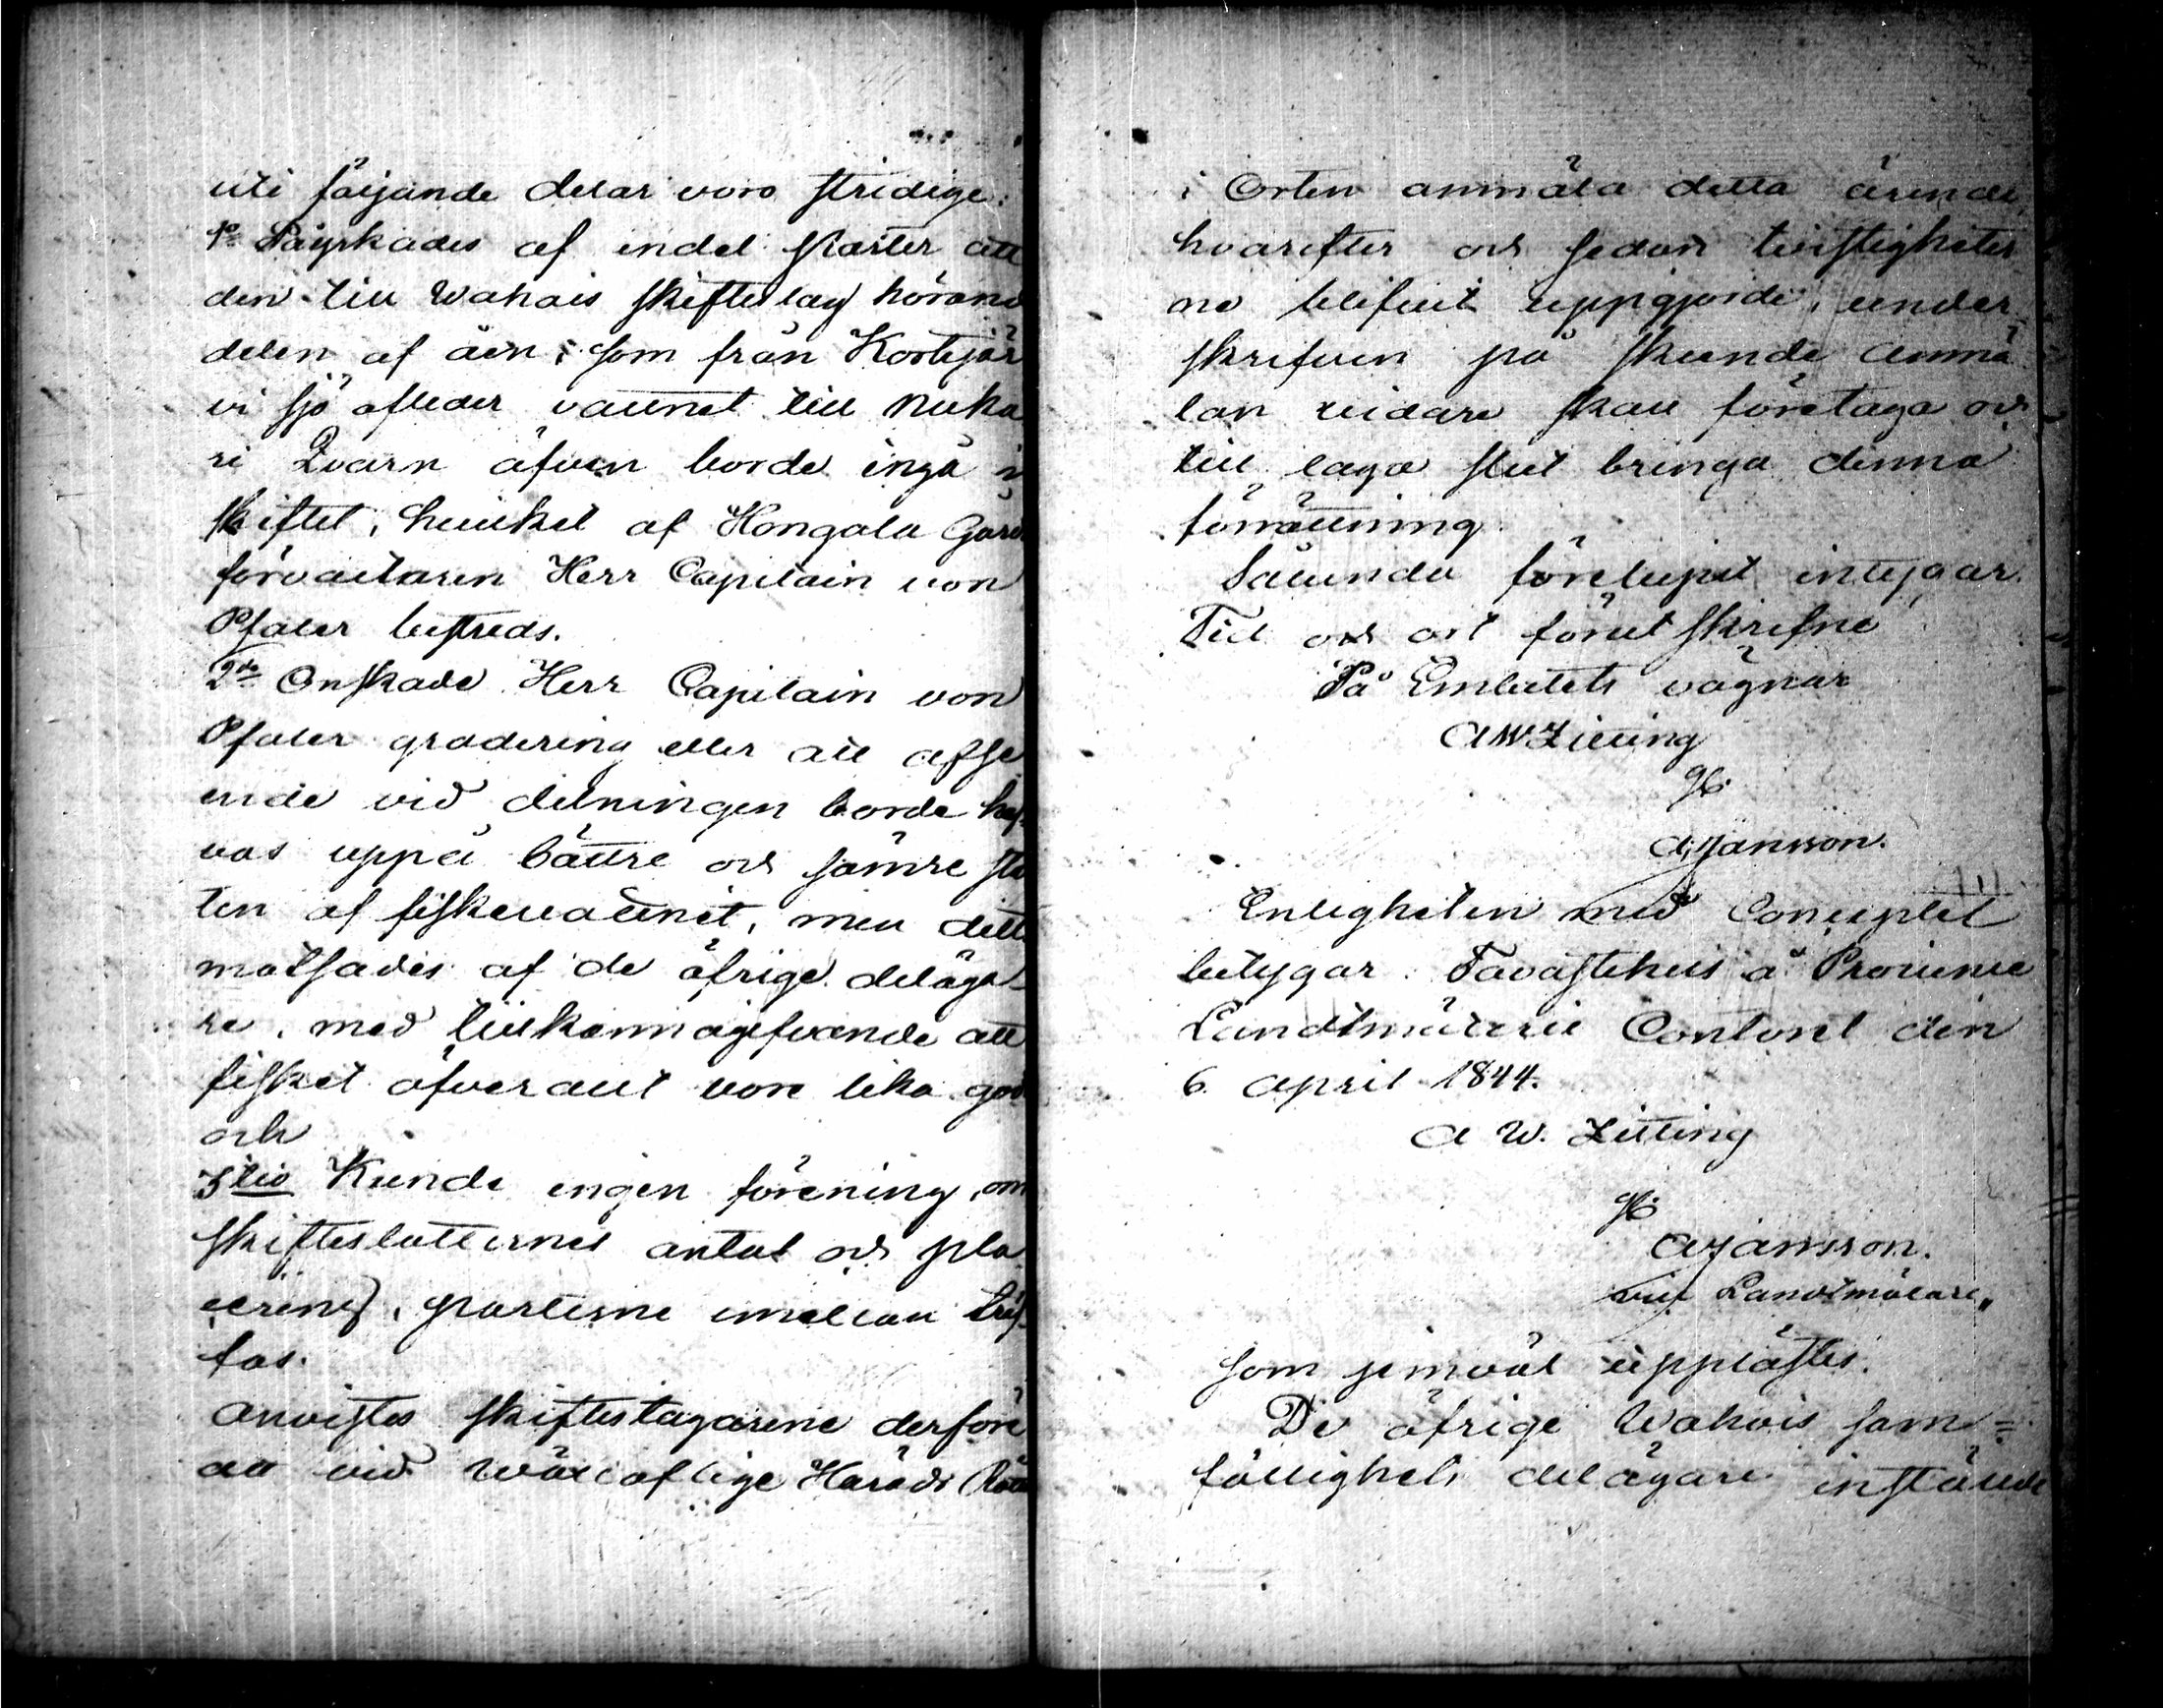 uti följande delar voro stridige:
1o Påyrkades af endel Parter att
den till Wahais skifteslag hörand
delen af åen; som från Kortejär
vi sjö afleder vattnet till Nuka
ri Qvarn äfven borde ingå i
skiftet, hvilket af Hongola Gårds
förvaltaren Herr Capitain von
Pfaler bestreds.
2do Önskade Herr Capitain von
Pfaler gradering eller att afse
ende vid delningen borde haf-
vas uppå bättre och sämre stä
len af fiskevattnet, men dett
motsades af de öfrige deläga-
re, med tillkännagifvande att
fisket öfverallt vore lika god
och
3tio Kunde ingen förening, om
skifteslotternes antal och pla
cering, parterne emellan träf-
fas.
Anvistes skiftestagarene derföre
att vid Wällofliga Härads Rätt
i Orten anmäla detta ärende,
hvarefter och sedan tvistigheter
ne blifvit uppgjorde, under
skrifven på skeende anmä
lan vidare skall företaga och
till laga slut bringa denna
förrättning.
Sålunda förelupit intygar.
Tid och ort förut skrifne
På Embetets vägnar
A W Zitting
gb.
A. Jansson.
Enligheten med Conceptet
betygar. Tavastehus å Provincie
Landtmäterie Contoret den
6 April 1844.
A W. Zitting
gb
A Jansson.
vice Landtmätare„
som jemväl upplästes.
De öfrige Wahais sam=
fällighets delägare instälde